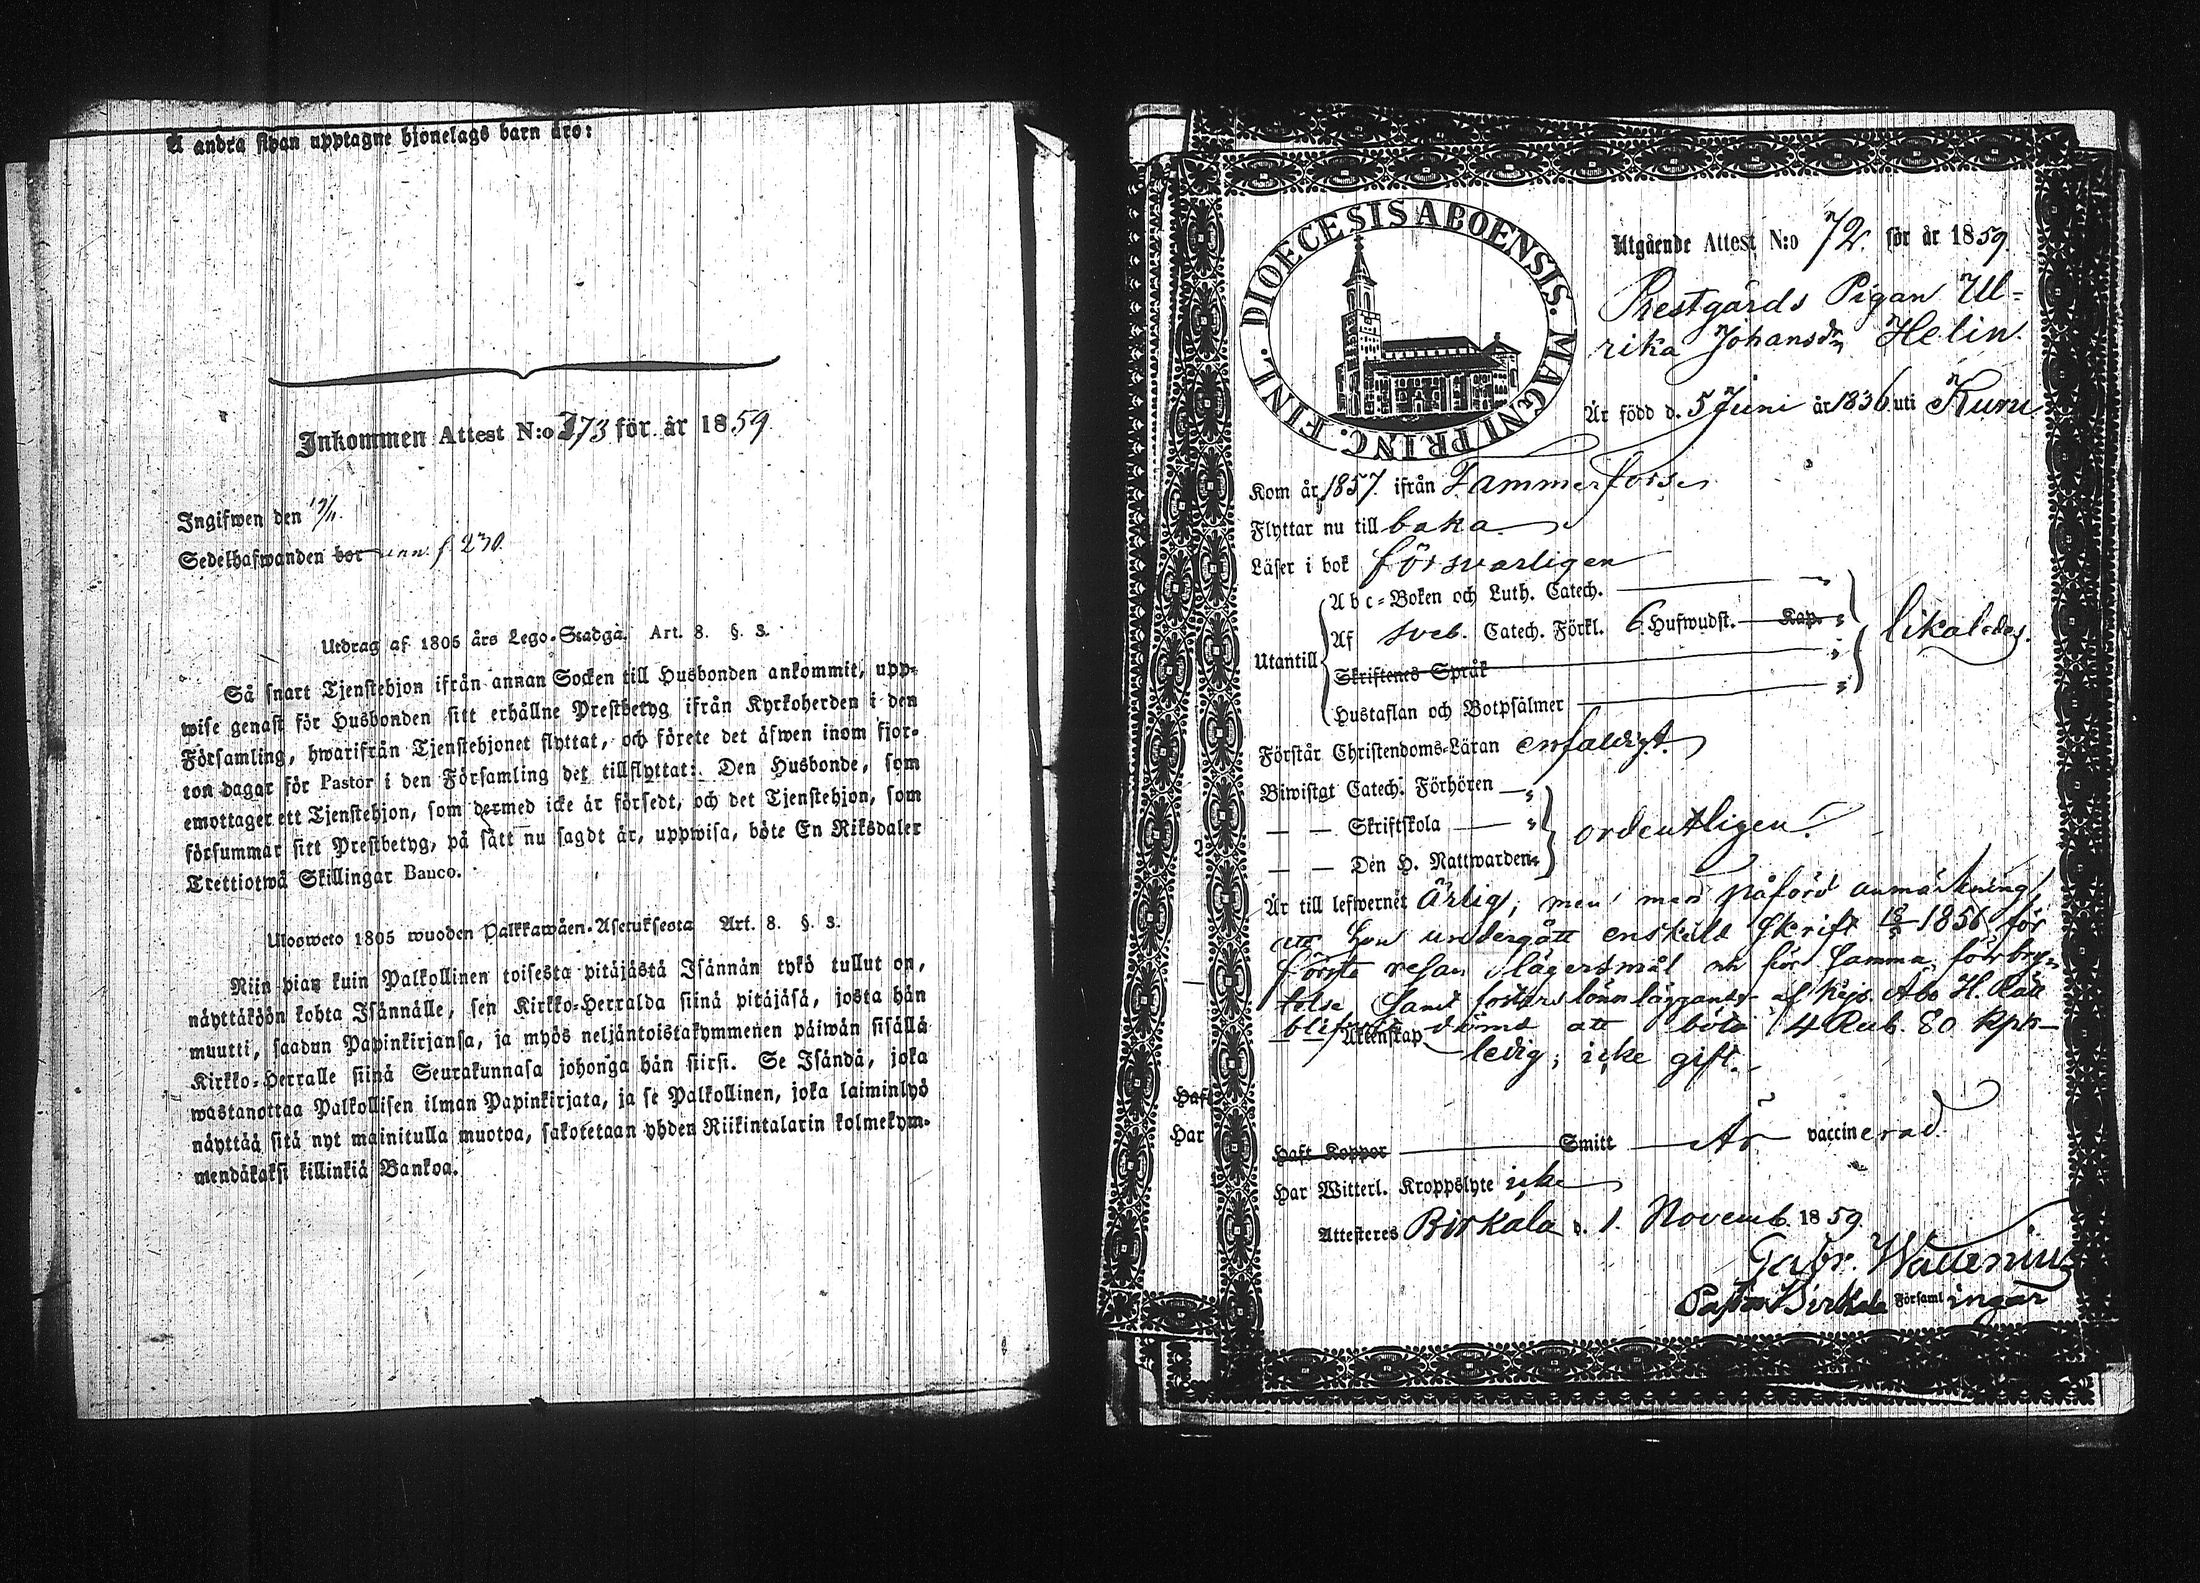 Å andra sidan upptagne hjonelags barn äro:
Inkommen Attest N:o 373 för år 1859
Ingifwen den 19/11.
Sedelhafwanden bor inn. f. 230.
Utdrag af 1805 års Lego-Stadga. Art. 8. §. 3.
Så snart Tjenstehjon ifrån annan Socken till Husbonden ankommit, upp-
wise genast för Husbonden sitt erhållne Prestbetyg ifrån Kyrkoherden i den
Församling, hwarifrån Tjenstehjonet flyttat, och förete det äfwen inom fjor-
ton dagar för Pastor i den Församling det tillflyttat: Den Husbonde, som
emottager ett Tjenstehjon, som dermed icke är försedt, och det Tjenstehjon, som
försummar sitt Prestbetyg, på sätt nu sagdt är, uppwisa, böte En Riksdaler
Trettiotwå Skillingar Banco.
Ulosweto 1805 wuoden Palkkawäen-Asetuksesta Art. 8. §. 3.
Niin pian kuin Palkollinen toisesta pitäjästä Isännän tykö tullut on,
näyttäköön kohta Isännälle, sen Kirkko-Herralda siinä pitäjäsä, josta hän
muutti, saadun Papinkirjansa, ja myös neljäntoistakymmenen päiwän sisällä
Kirkko-Herralle siinä Seurakunnasa johonga hän siirsi. Se Isändä, joka
wastanottaa Palkollisen ilman Papinkirjata, ja se Palkollinen, joka laiminlyö
näyttää sitä nyt mainitulla muotoa, sakotetaan yhden Riikintalarin kolmekym-
mendäkaksi killinkiä Bankoa.
DIOECESIS ABOENSIS. MAGNI PRINC. FINL.
Utgående Attest N:o 72. för år 1859.
Prestgårds Pigan Ul-
rika Johansdr Helin.
Är född d. 5 Juni år 1836 uti Kuru
Kom år 1857. ifrån Tammerfors
Flyttar nu till baka
Läser i bok försvarligen
Abc-Boken och Luth. Catech.
Af sveb. Catech. Förkl. 6 Hufwudst. Kap.
likaledes.
Utantill
Skriftenes Språk
Hustaflan och Botpsalmer
Förstår Christendoms-Läran enfaldigt.
Biwistat Catech. Förhören
— — Skriftskola
ordentligen.
— — Den H. Nattwarden
Är till lefwernet Ärlig, men med påförd anmärkning,
att hon undergått enskild skrift 1856 för
första resan lägersmål och för samma förbry-
telse samt fosters lönnläggande af Kejs. Åbo H. Rätt
blifvit dömd att böta 14 Rub. 80 kpk
Äktenskap ledig, icke gift.
Haft
Har
Haft Koppor Smitt Är vaccinerad.
Har Witterl. Kroppslyte icke
Attesteres Birkala d. 1. Novemb. 1859
Gabr. Wallenius
Pastor i Birkala Församlingar